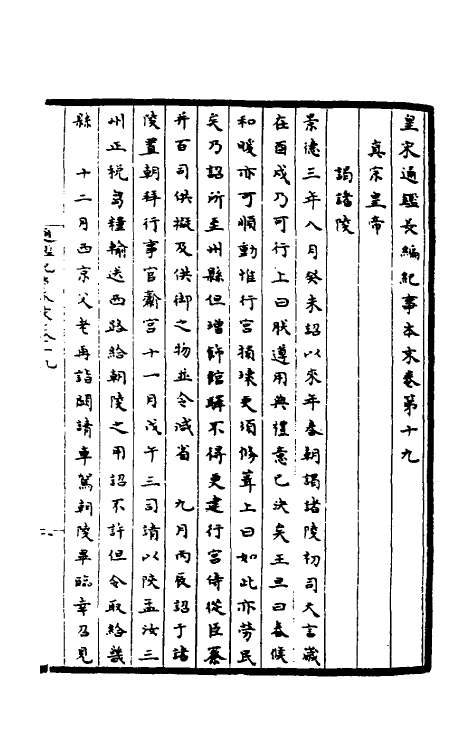 皇宋通鑑長編紀事本末卷第十九
真宗皇帝
謁諸陵
景德三年八月癸未詔以來年春朝謁諸陵初司天言歲
在酉戌乃可行上曰朕遵用典禮意已決矣王旦曰春候
和暖亦可順動惟行宮損壞更須修葺上曰如此亦勞民
矣乃詔所至州縣但增飾館驛不得更建行宮侍從臣寮
并百司供擬及供御之物並令減省　九月丙辰詔于諸
陵置朝拜行事官齋宮十一月戊午三司請以陝孟汝三
州正稅芻糧輸送西路給朝陵之用詔不許但令取給畿
縣　十二月西京父老再詣闕請車駕朝陵畢臨幸召見